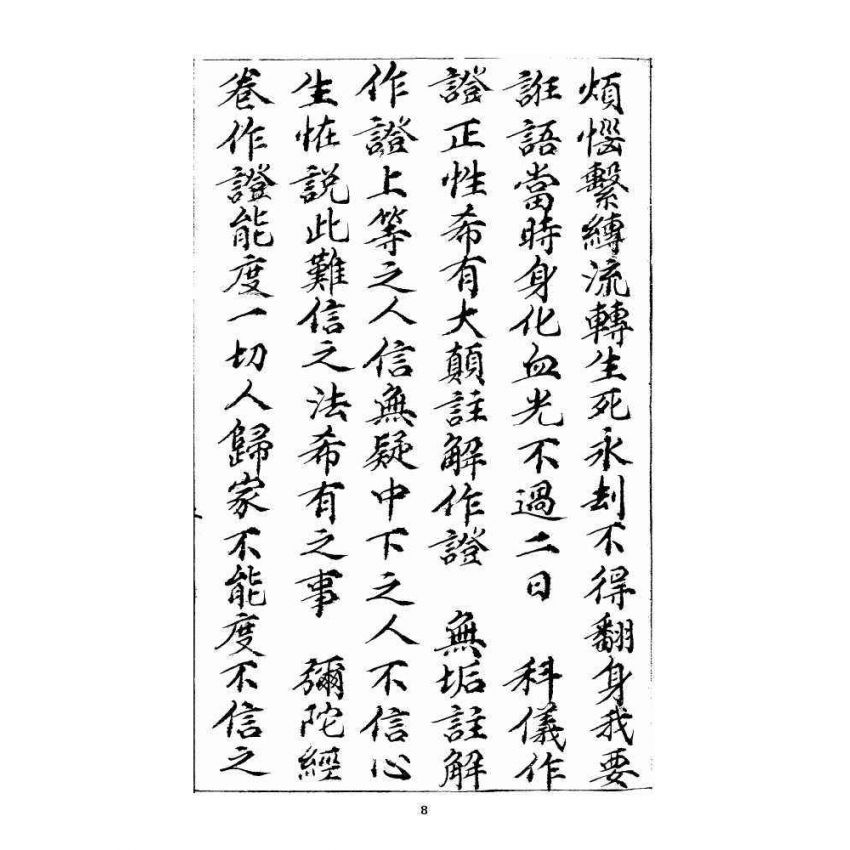 煩惱繫縛流轉生死永刦不得翻身我要
誑語當時身化血光不過二日　科儀作
證正性希有大顛註解作證　無垢註解
作證上等之人信無疑中下之人不信心
生怪説此難信之法希有之事　彌陀經
卷作證能度一切人歸家不能度不信之
8